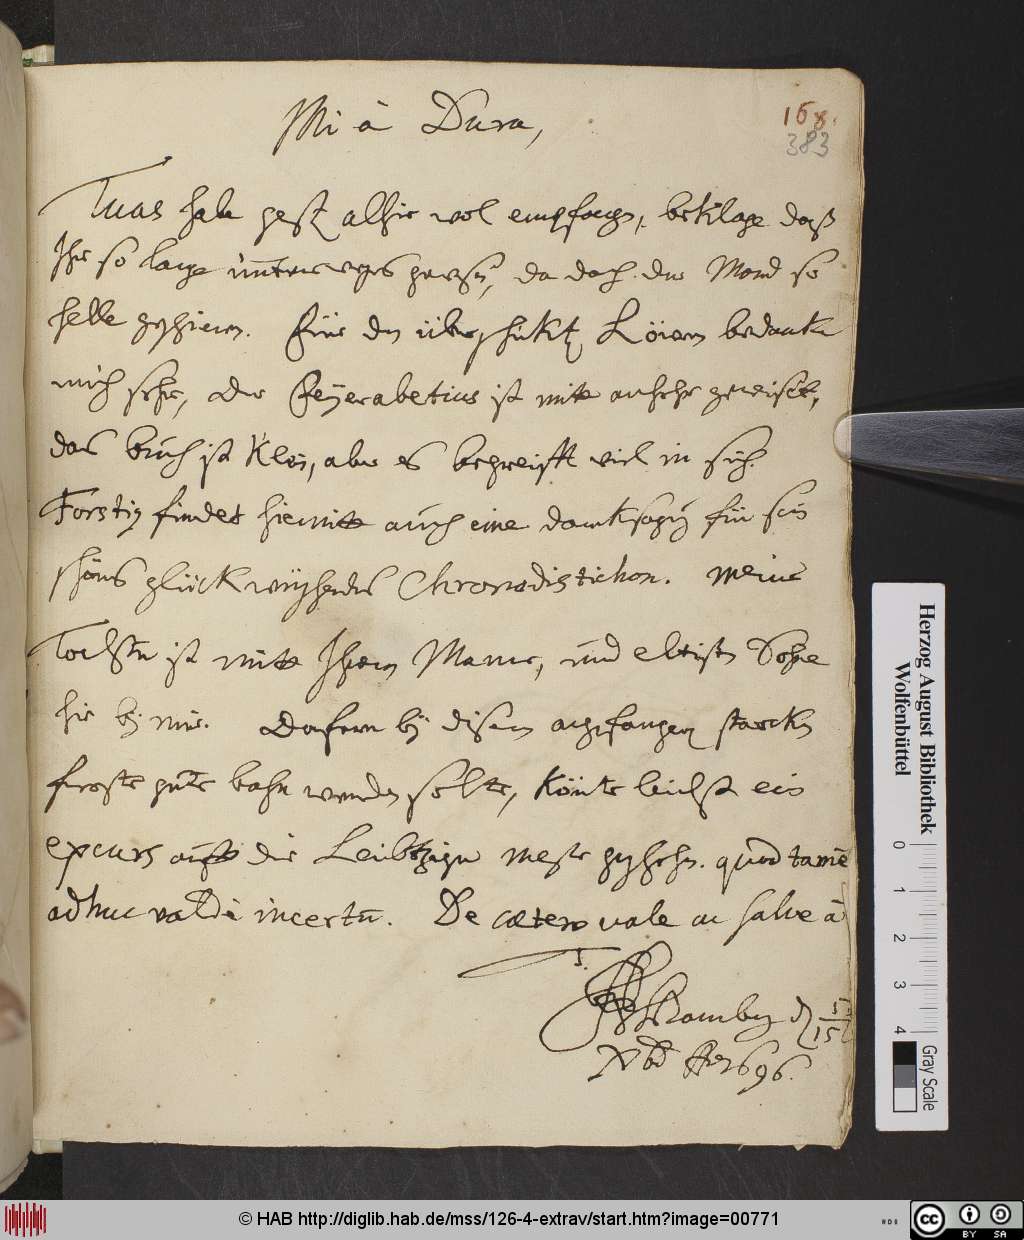 Mi à Dura,
168.
383
Tuas habe gest. alhir wol empfangen, beklage daß
Ihr so lange unterweges gewesen, da doch der Mond so
helle geschienen. Für den überschikten bedanke
mich sehr, der Feyerabetius ist mitt angereiset,
das buch ist Klein, aber es begreifft viel in sich.
findet hiemitt auch eine danksagung für sein
schönes glückwünschendes Chronodistichon. Meine
Tochter ist mitt Ihrem Manne, und eltisten Sohne
hie bey mir. Dafern bey disem angefangenen starcken
froste gute bahn werden solte, Könte leicht ein
excurs auff die Leibtziger messe geschehen. quod tamē
adhuc valdè incertū. De cætero vale ac salve à
T.
d. 5/15
Xbr 1696.
Herzog August Bibliothek
Wolfenbüttel
0 1 2 3 4
Gray Scale
© HAB http://diglib.hab.de/mss/126-4-extrav/start.htm?image=00771
cc BY SA